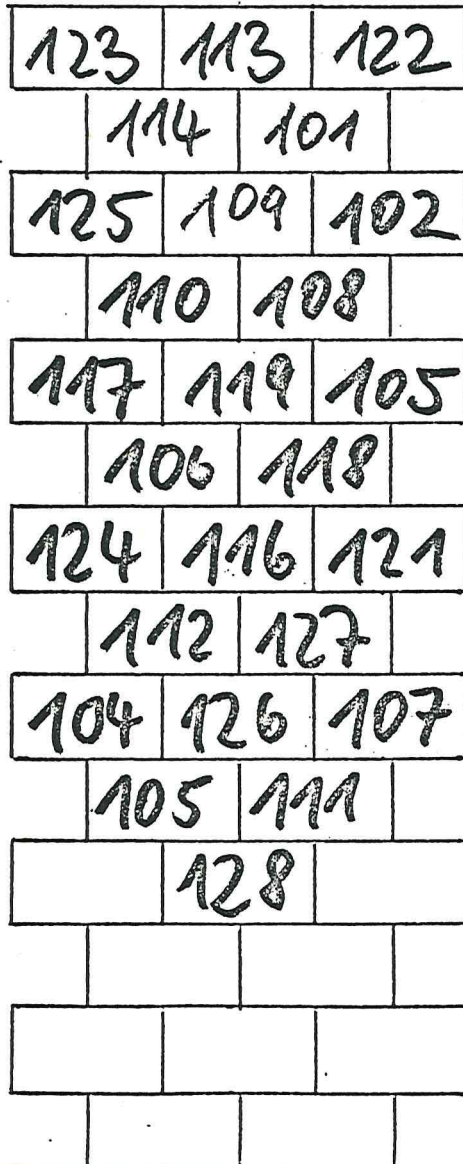 123 113 122
114 101
125 109 102
110 108
117 119 105
106 118
124 116 121
112 127
104 126 107
105 111
128